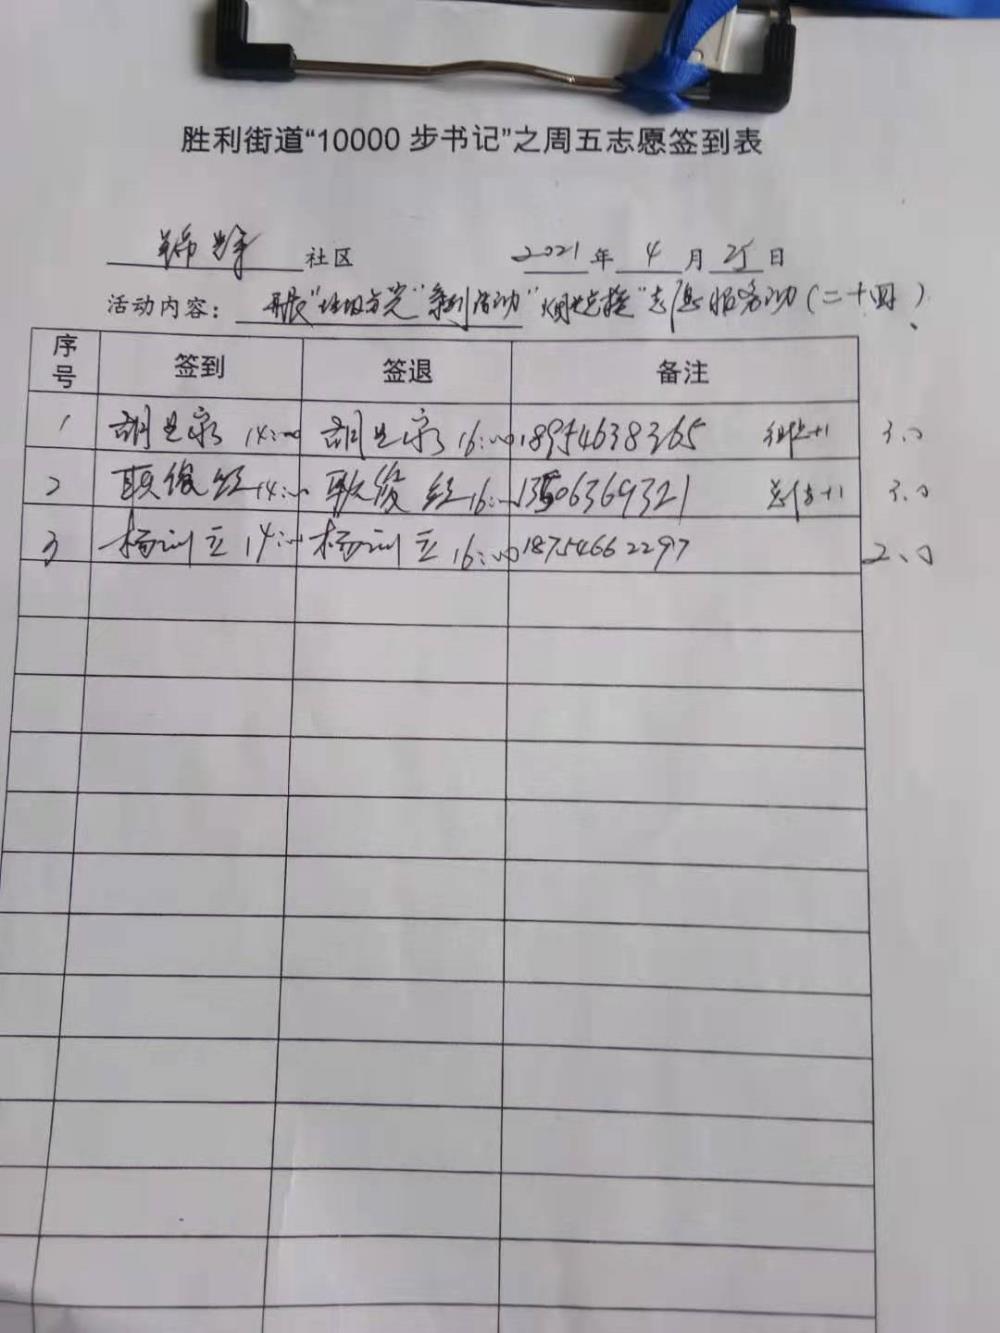 胜利街道“10000步书记”之周五志愿签到表
锦华社区 2021年4月25日
活动内容：开展“垃圾分类”系列活动“烟头兑换”志愿服务活动（二十四）
序号 签到 签退 备注
1 胡 14:00 胡 16:00 18954638365 +1 3.0
2 耿俊 14:00 耿俊 16:00 13506369321 +1 3.0
3 杨训立 14:00 杨训立 16:00 18754662297 2.0